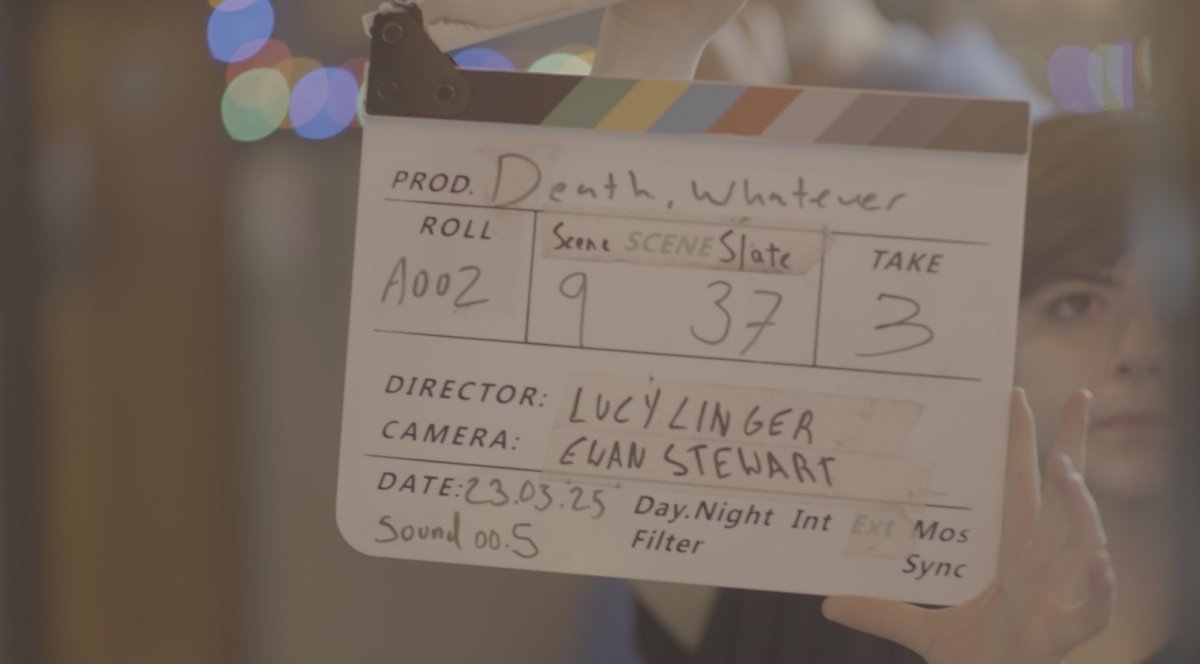 PROD. Death, Whatever
ROLL Scene SCENE Slate TAKE
A002 9 37 3
DIRECTOR: LUCY LINGER
CAMERA: EWAN STEWART
DATE: 23.03.25 Day.Night Int Ext Mos
Sound 00.5 Filter Sync